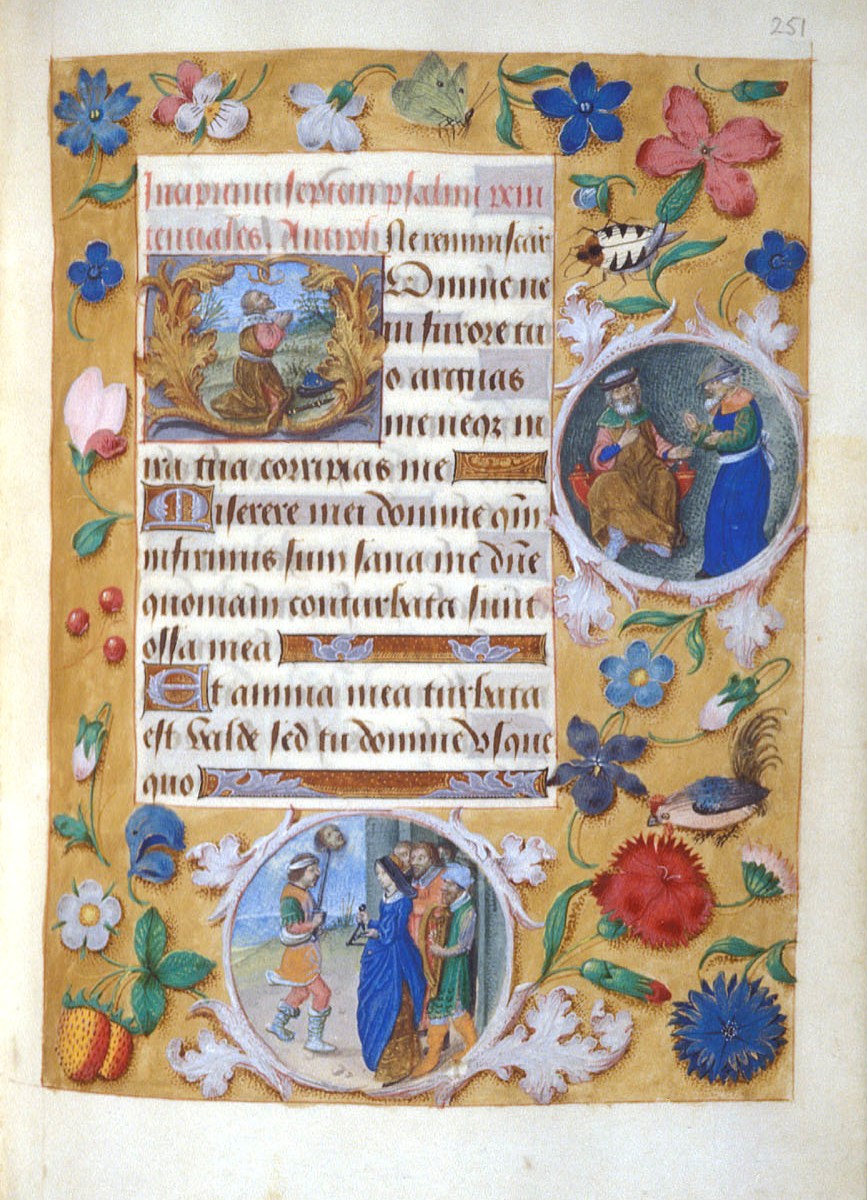 251
Incipiunt septem psalmi peni
tenciales. Antiph Ne reminiscar
Domine ne
in furore tu
o arguas
me neqz in
ira tua corripias me
Miserere mei domine qm̄
infirmus sum sana me dn̄e
quoniam conturbata sunt
ossa mea
Et anima mea turbata
est valde sed tu domine vsque
quo